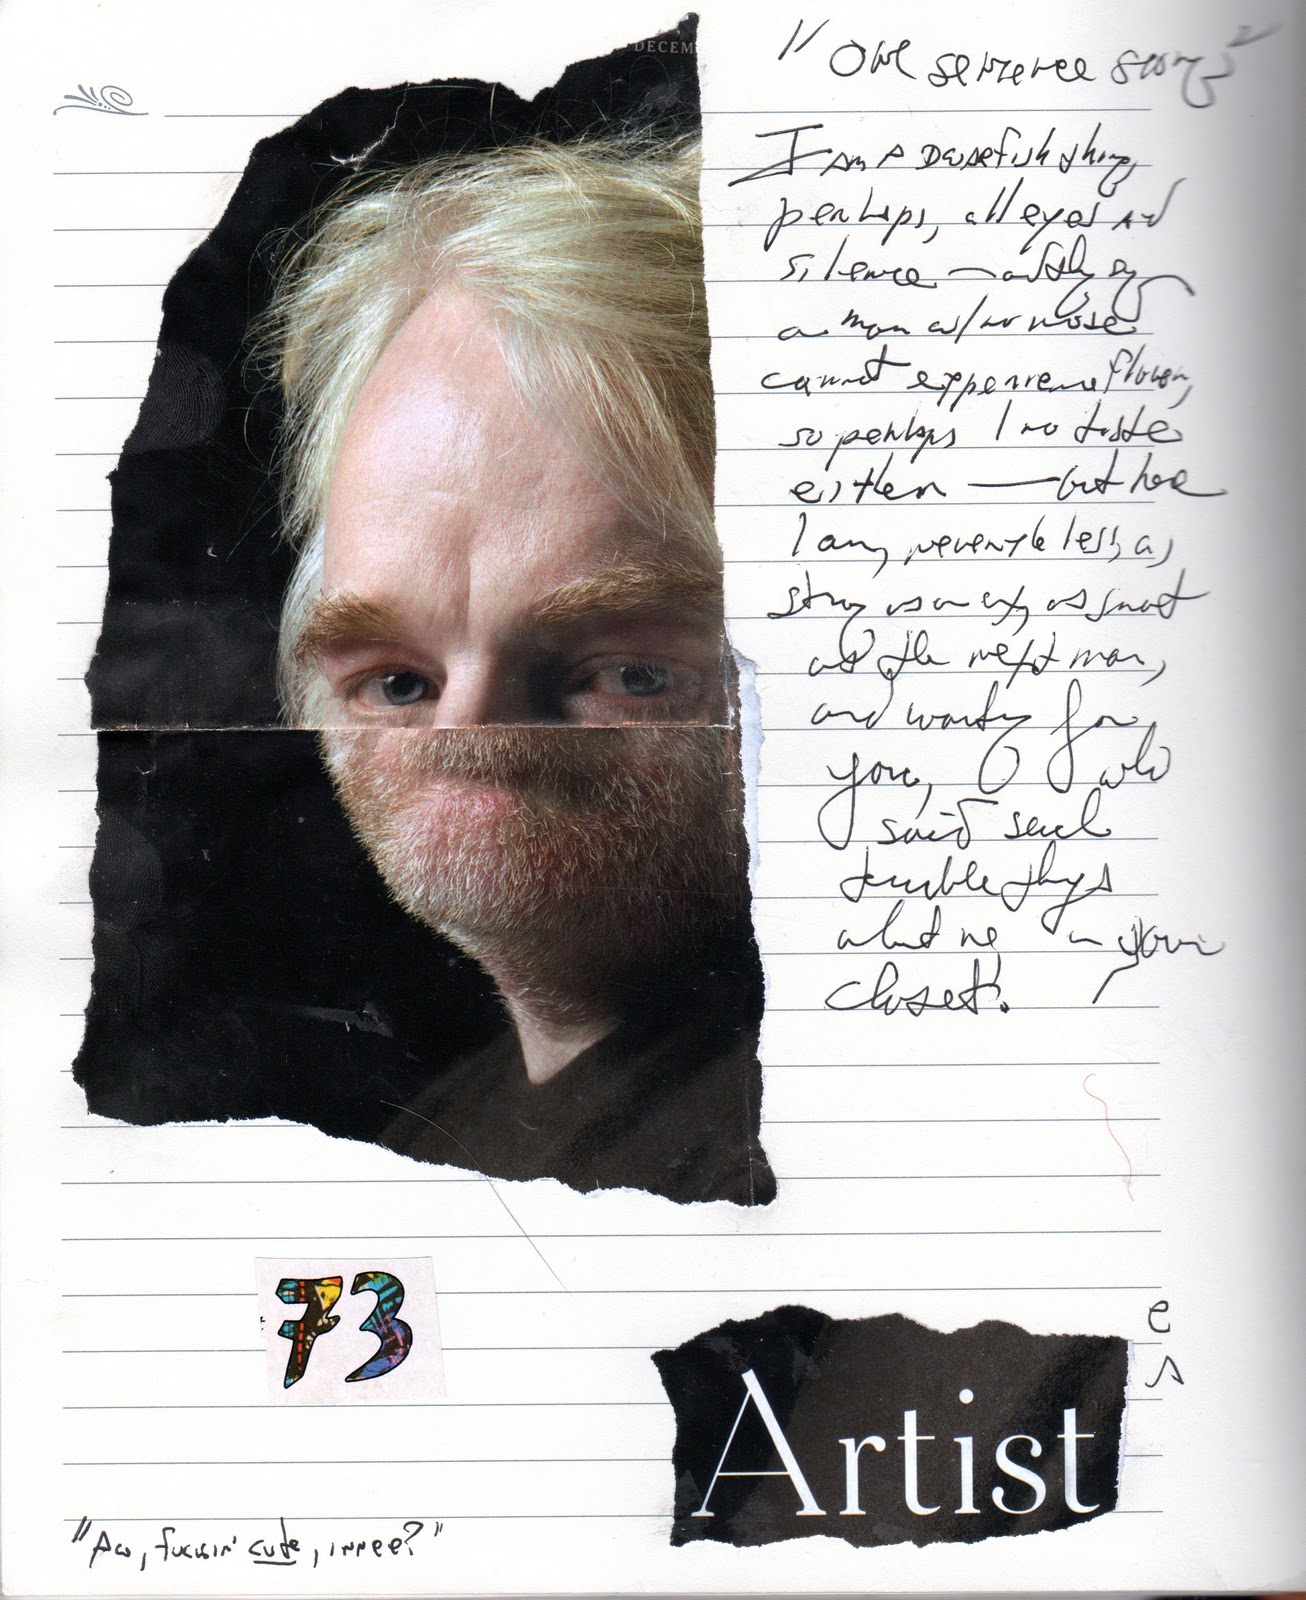 DECEM
"One sentence story"
I am a thing,
perhaps, all eyes and
silence —
a man w/ no nose
cannot experience flavor,
so perhaps I no taste
either — but here
I am, nevertheless, as
strong as an ox, as smart
as the next man,
and waiting for
you, O who
said such
terrible things
about me in your
closet.
73
e
s
Artist
"Aw, fuckin' cute, innee?"